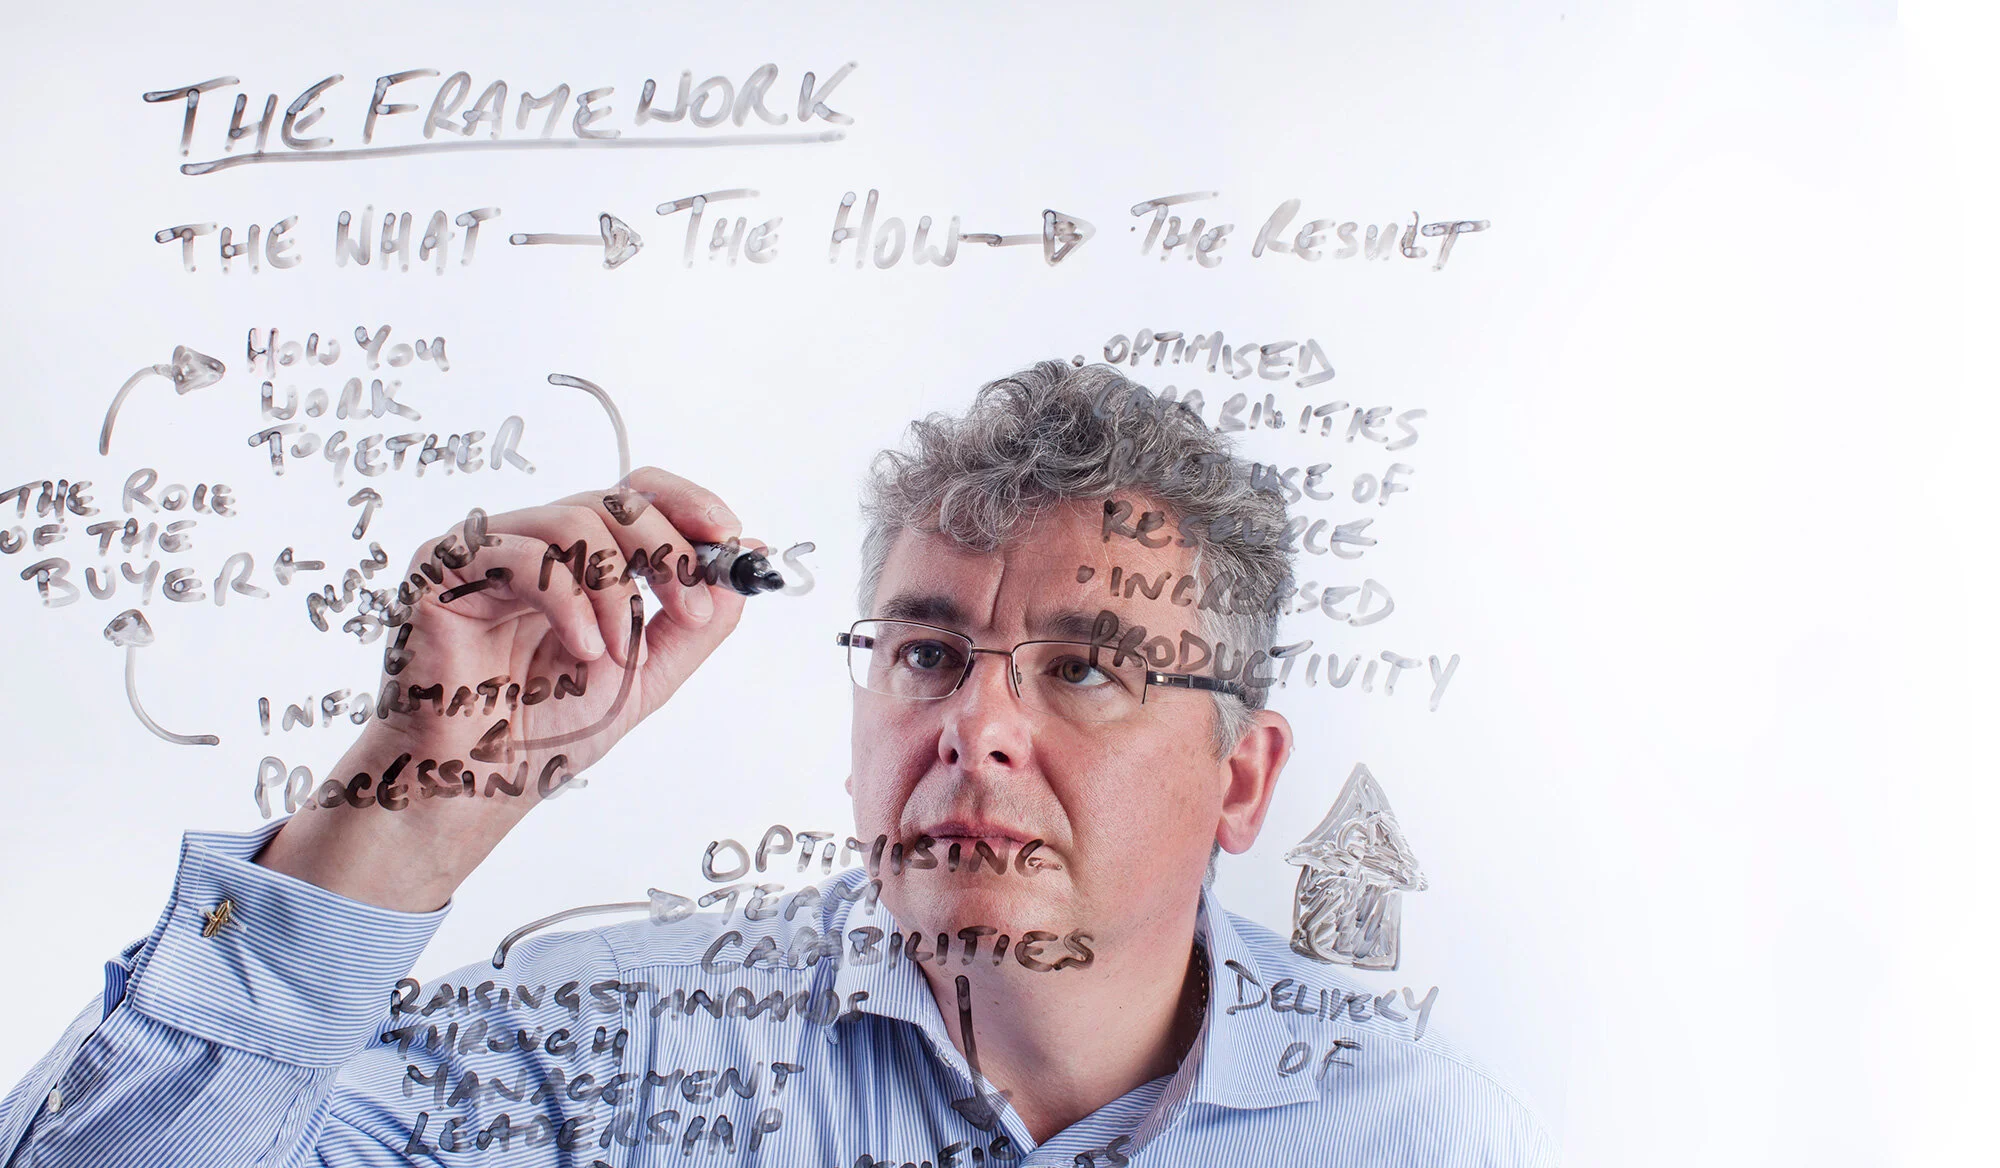 THE FRAMEWORK
THE WHAT THE HOW THE RESULT
HOW YOU
WORK
TOGETHER
THE ROLE
OF THE
BUYER
PLAN
DELIVER
MEASURES
INFORMATION
PROCESSING
• OPTIMISED
CAPABILITIES
BEST USE OF
RESOURCE
• INCREASED
PRODUCTIVITY
OPTIMISING
TEAM
CAPABILITIES
RAISING STANDARDS
THROUGH
MANAGEMENT
LEADERSHIP
DELIVERY
OF